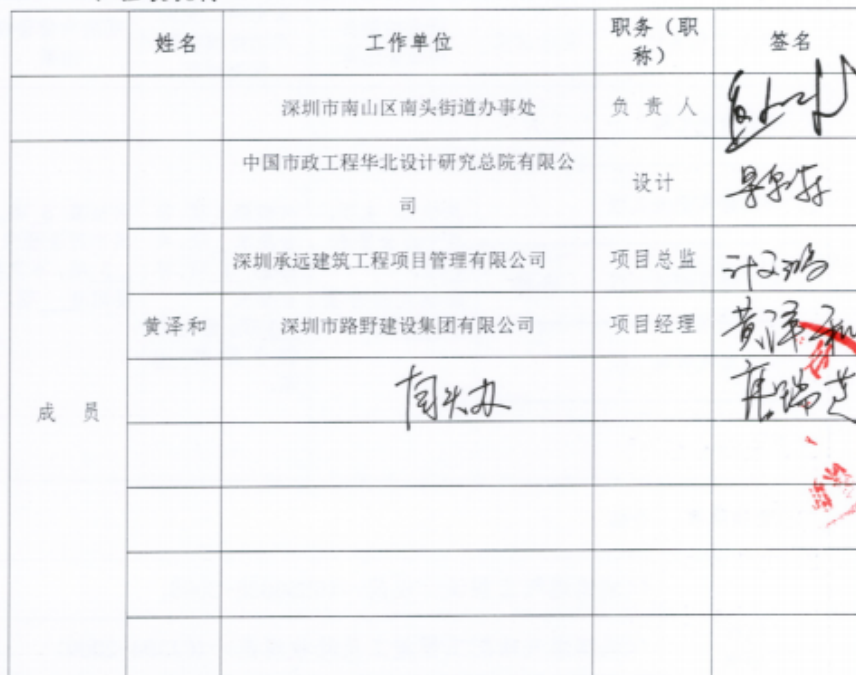 姓名 工作单位 职务（职
称） 签名
深圳市南山区南头街道办事处 负责人
中国市政工程华北设计研究总院有限公
司 设计
深圳承远建筑工程项目管理有限公司 项目总监
黄泽和 深圳市路野建设集团有限公司 项目经理 黄泽和
成员 南头办